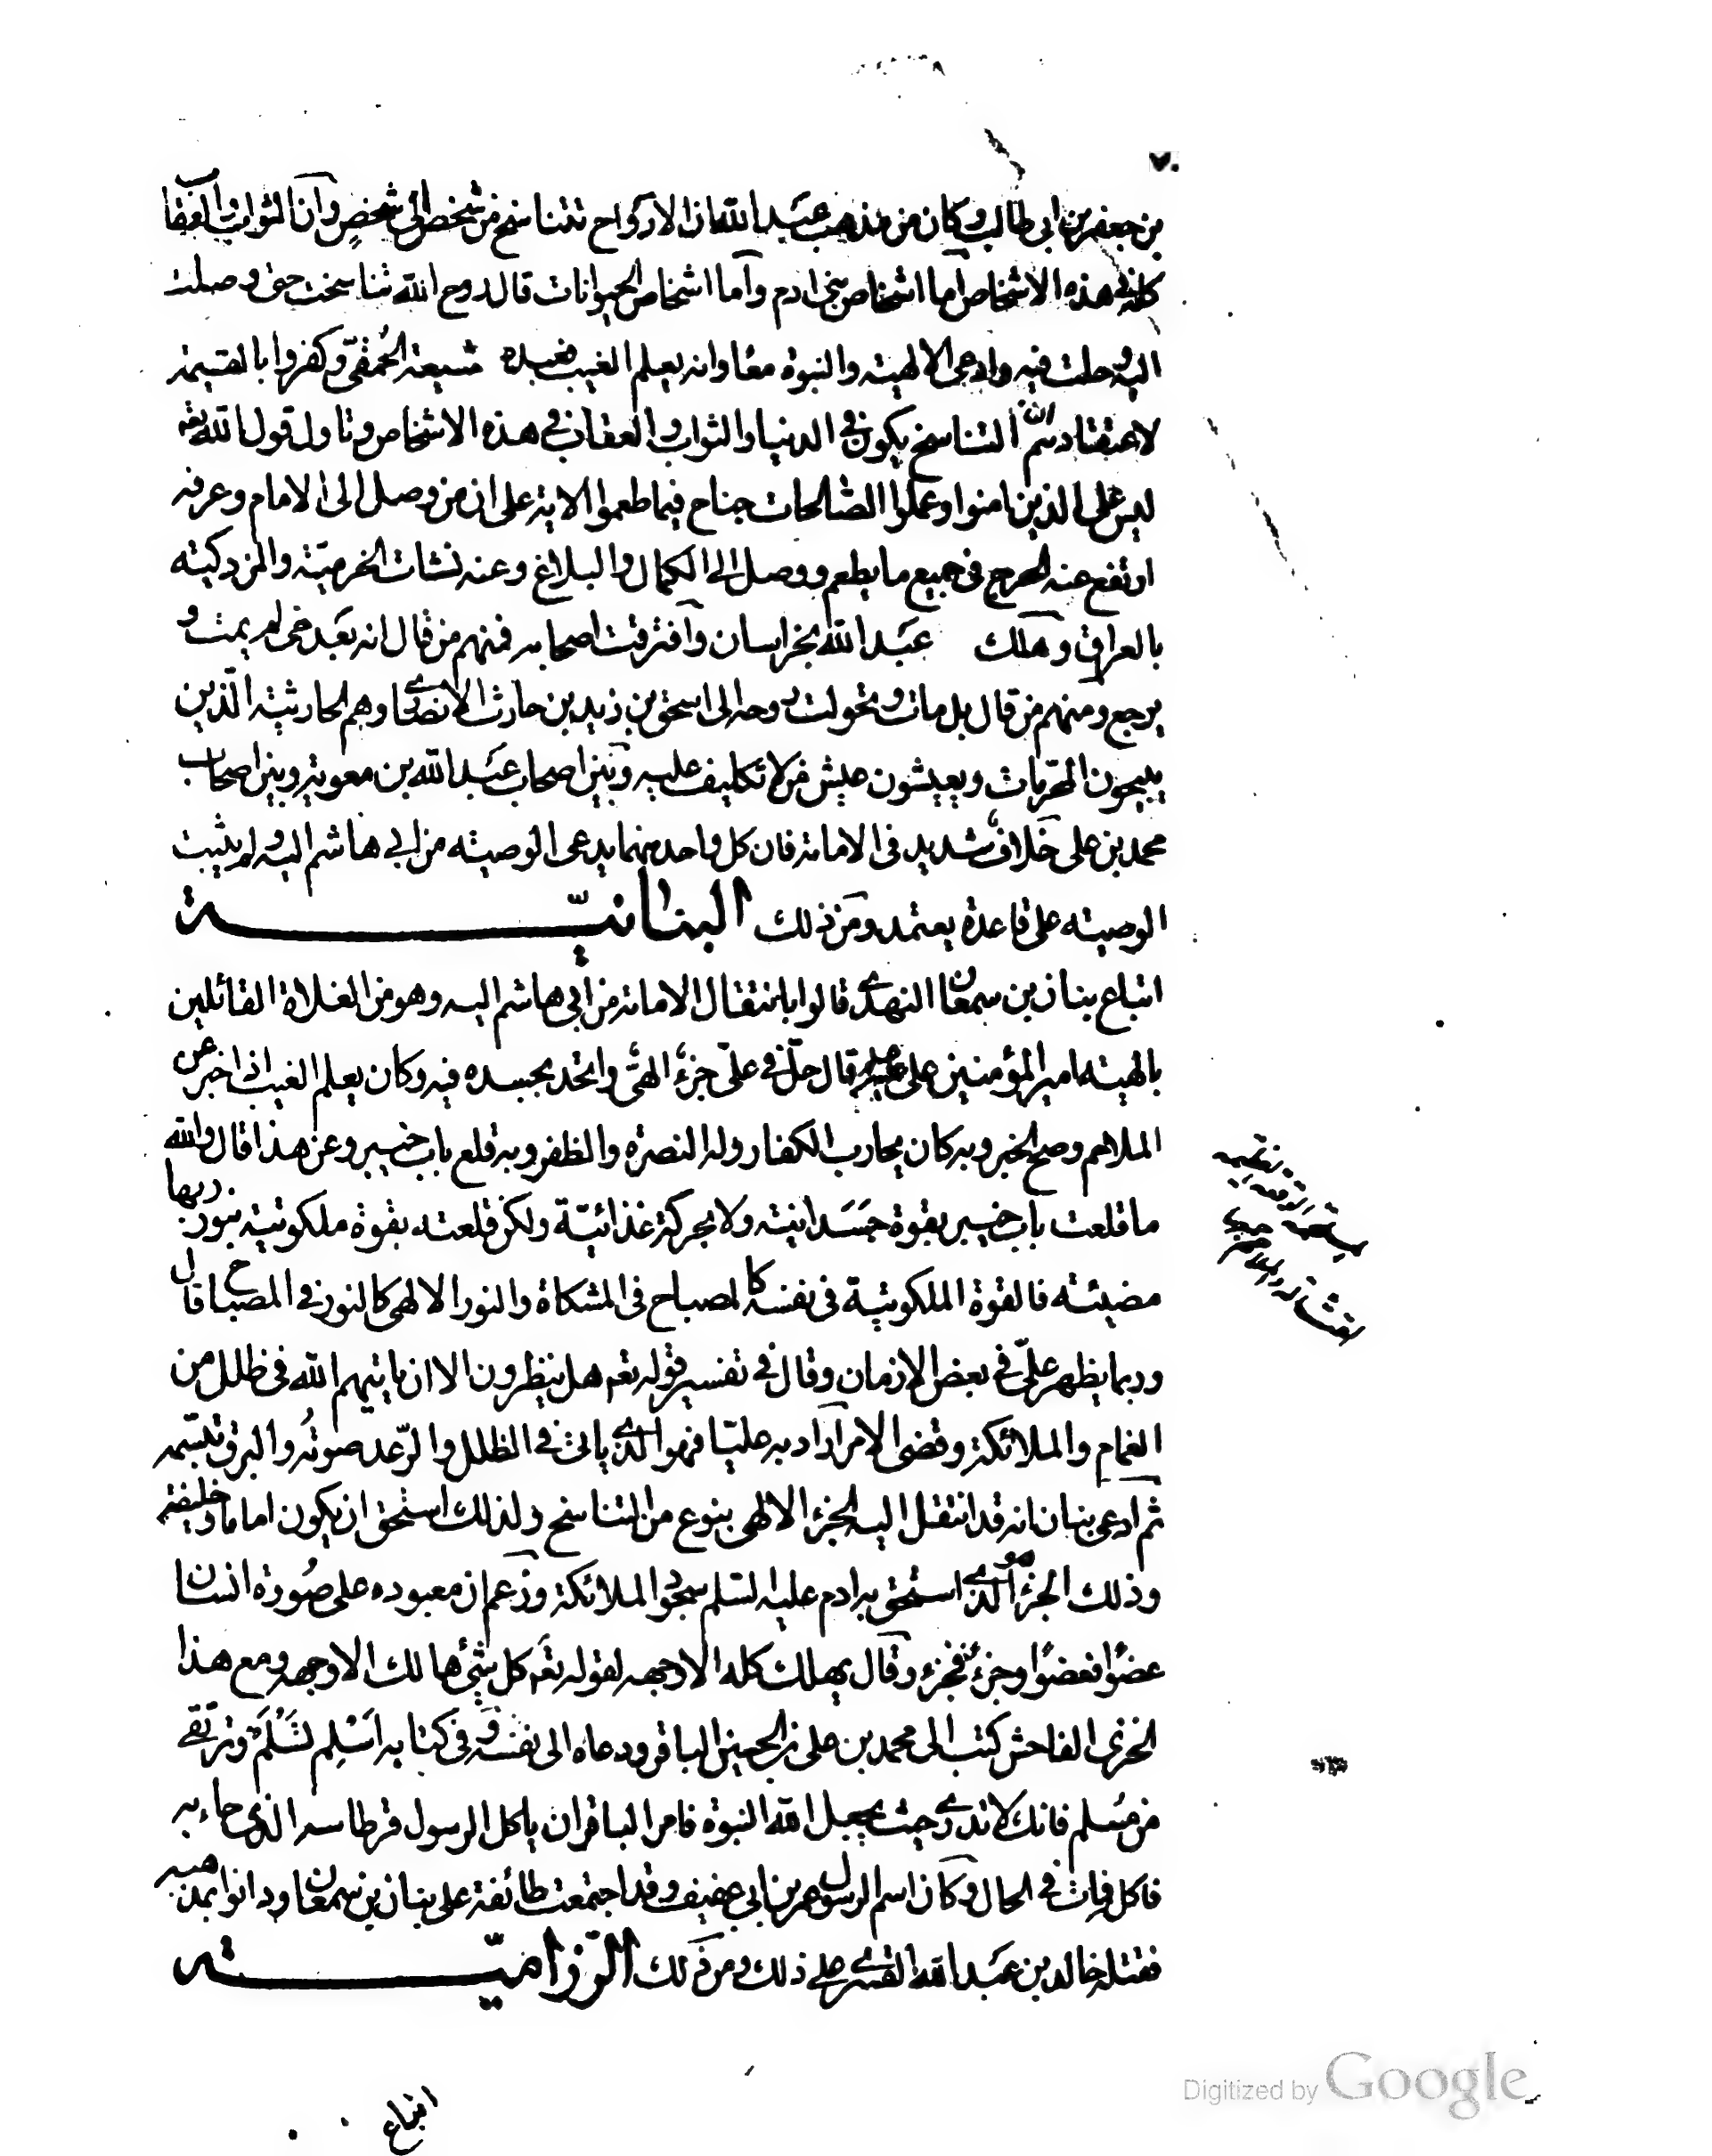 ٧٠
بن جعفر بن ابى طالب وكان من مذهب عبد الله ان الارواح تتناسخ من شخص الى شخص وان الثواب والعقاب
كله فى هذه الاشخاص اما اشخاص بنى ادم واما اشخاص الحيوانات قال روح الله تناسخت حتى وصلت
اليه وحلت فيه وادعى الالهيته والنبوة معا وانه يعلم الغيب فعبده شيعته الحمقى وكفروا بالقيمة
لاعتقادهم ان التناسخ يكون فى الدنيا والثواب والعقاب فى هذه الاشخاص وتاول قول الله تعه
ليس على الذين امنوا وعملوا الصالحات جناح فيما طعموا الاية على ان من وصل الى الامام وعرفه
ارتفع عنه الحرج فى جميع ما يطعم ووصل الى الكمال والبلاغ وعنه نشات الخرمية والمزدكية
بالعراق وهلك عبد الله بخراسان وافترقت اصحابه فمنهم من قال انه بعد حى لم يمت و
يرجع ومنهم من قال بل مات وتحولت روحه الى اسحق بن زيد بن حارث الانصارى وهم الحارثية الذين
يبيحون المحرمات ويعيشون عيش من لا تكليف عليه وبين اصحاب عبد الله بن معوية وبين اصحاب
محمد بن على خلاف شديد فى الامامة فان كل واحد منهما يدعى الوصية من ابى هاشم اليه ولم يثبت
الوصية على قاعدة يعتمد ومن ذلك البنانيّة
اتباع بنان بن سمعان النهدى قالوا بانتقال الامامة من ابى هاشم اليه وهو من الغلاة القائلين
بالهية امير المؤمنين على قال حل فى علىّ جزء الهىّ واتحد بجسده فيه وكان يعلم الغيب اذ اخبر عن
الملاحم وصح الخبر وبه كان يحارب الكفار وله النصرة والظفر وبه قلع باب خيبر وعن هذا قال والله
ما قلعت باب خيبر بقوة جسدانية ولا بحركة غذائيّة ولكن قلعته بقوة ملكوتية بنور ربها
مضيئة فالقوة الملكوتية فى نفسه كالمصباح فى المشكاة والنور الالهى كالنور فى المصباح قال
وربما يظهر علىّ فى بعض الازمان وقال فى تفسير قوله تعه هل ينظرون الا ان ياتيهم الله فى ظلل من
الغمام والملائكة وقضى الامر اراد به عليّا فهو الذى ياتى فى الظلل والرّعد صوته والبرق تبسّمه
ثم ادعى بنان انه قد انتقل اليه الجزء الالهى بنوع من التناسخ ولذلك استحق ان يكون اماما وخليفة
وذلك الجزء هو الذى استحق به ادم عليه السلم سجود الملائكة وزعم ان معبوده على صورة انسان
عضوا فعضوا وجزءً فجزء وقال يهلك كله الا وجهه لقوله تعه كل شئ هالك الا وجهه ومع هذا
الخزى الفاحش كتب الى محمد بن على بن الحسين الباقر ودعاه الى نفسه وفى كتابه اسلم تسلم وترتقى
من سلم فانك لا تدرى حيث يجعل الله النبوة فامر الباقر ان ياكل الرسول قرطاسه الذى جاء به
فاكل فمات فى الحال وكان اسم الرسول عمر بن ابى عفيف وقد اجتمعت طائفة على بنان بن سمعان ودانوا بمذهبه
فقتله خالد بن عبد الله القسرى على ذلك ومن ذلك الرّزاميّة
اتباع
Digitized by Google